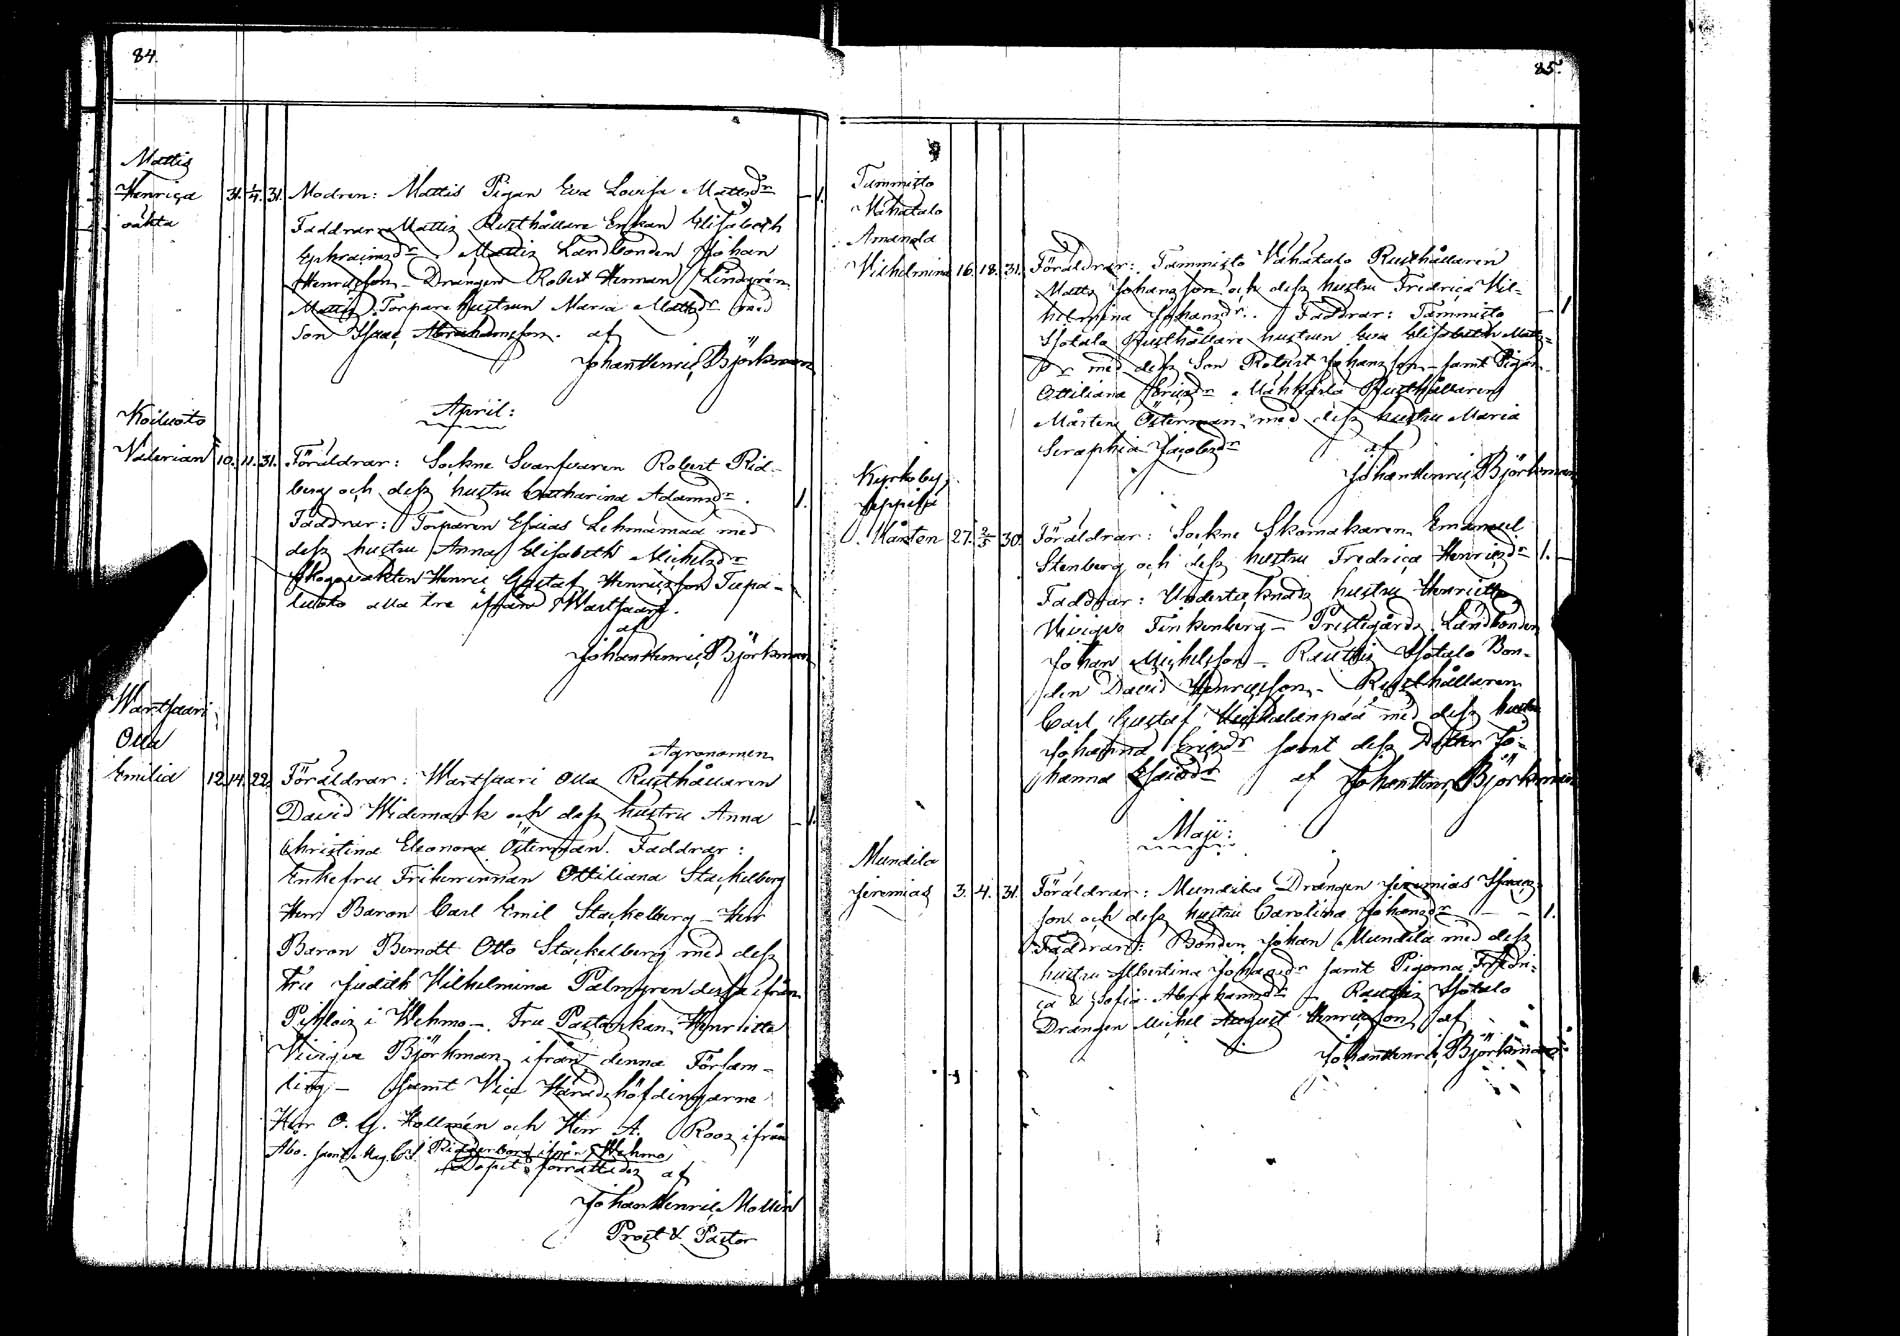 84.
Mattis
Henrica
oäkta
31. 1/4. 31.
Modren: Mattis Pigan Eva Lovisa Mattsdr — 1.
Faddrar: Mattis Rusthållare Enkan Elisabeth
Ephraimsdr Mattis Landbonden Johan
Henricsson – Drängen Robert Herman Lindgrén
Mattis Torpare hustrun Maria Mattsdr med
Son Isaac Abrahamsson. af
Johan Henric Björkman
April:
Koiluoto
Valerian
10. 11. 31.
Föräldrar: Sockne Svarfvaren Robert Rid-
berg och dess hustru Catharina Adamsdr. 1.
Faddrar: Torparen Esaias Lehmämaa med
dess hustru Anna Elisabeth Michelsdr
Skogsvakten Henric Gustaf Henricsson Tupa-
luoto alla tre ifrån Wartsaari.
af
Johan Henric Björkman
Wartsaari
Olla
Emilia
12. 14. 22.
Agronomen
Föräldrar: Wartsaari Olla Rusthållaren
David Widemark och dess hustru Anna — 1.
Christina Eleonora Österman. Faddrar:
Enkefru Friherrinnan Ottiliana Stackelberg
Herr Baron Carl Emil Stackelberg – Herr
Baron Berndt Otto Stackelberg med dess
Fru Judith Vilhelmina Palmgren dessa ifrån
Pihlois i Wehmo –. Fru Pastorskan Henriette
Viviqve Björkman ifrån denna Försam-
ling – Samt Vice Häradshöfdingarne
Herr O. G. Hollmén och Herr A. Roos ifrån
Åbo. samt Mag. C. S. ifrån Wehmo
Dopet förrättades af
Johan Henric Mollin
Prost & Pastor
85.
Tammisto
Vähätalo
Amanda
Vilhelmina
16. 18. 31.
Föräldrar: Tammisto Vähätalo Rusthållaren
Matts Johansson och dess hustru Fredrica Vil-
helmina Johansdr. Faddrar: Tammisto — 1
Isotalo Rusthållare hustrun Eva Elisabeth Matts-
dr med dess Son Robert Johansson – samt Pigan
Ottiliana Ericsdr Mahkarla Rusthållaren
Mårten Österman med dess hustru Maria
Seraphia Jacobsdr af
Johan Henric Björkman
Kyrkoby
Seppilä
Mårten
27. 2/5 30.
Föräldrar: Sockne Skomakaren Emanuel
Stenberg och dess hustru Fredrica Henricsdr 1. —
Faddrar: Undertecknads hustru Henriette
Viviqve Finkenberg – Prestgårds Landbonden
Johan Michelsson –. Rautis Isotalo Bon-
den David Henricsson – Rusthållaren
Carl Gustaf med dess hustru
Johanna Ericsdr samt dess Dotter Jo-
hanna Esaiædr af Johan Henr. Björkman
Maji:
Mundila
Jeremias
3. 4. 31.
Föräldrar: Mundila Drängen Jeremias Isaacs-
son och dess hustru Carolina Johansdr — — 1.
Faddrar: Bonden Johan Mundila med dess
hustru Albertina Johansdr samt Pigorna Fredri-
ca & Sofia Abrahamsdr –. Rautis Isotalo
Drängen Michel August Henricsson af
Johan Henric Björkman